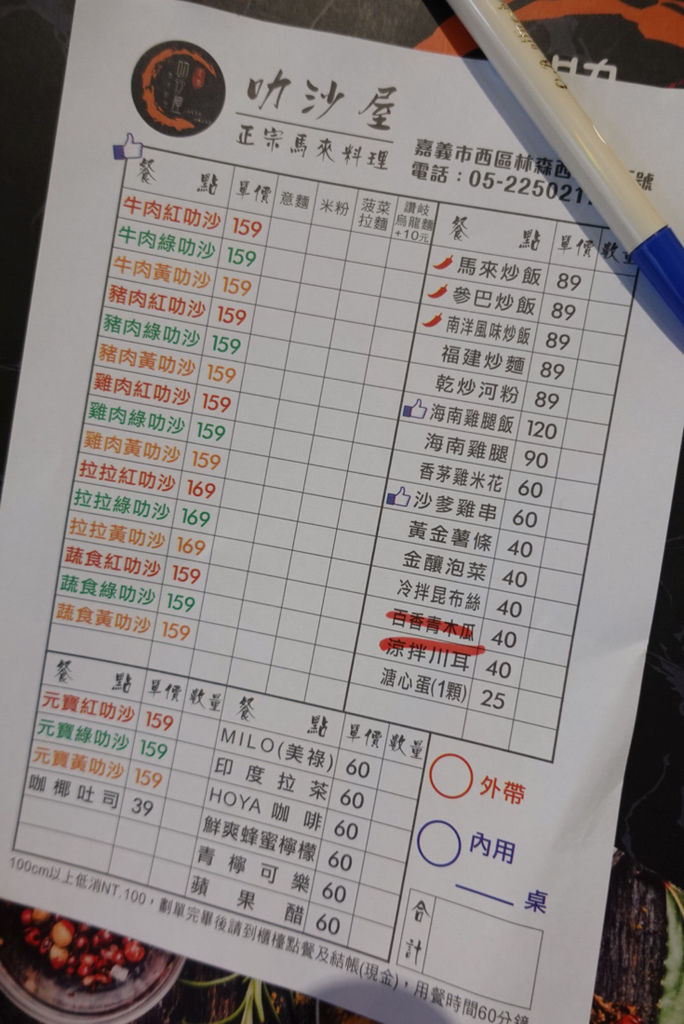 叻沙屋
正宗馬來料理
嘉義市西區林森西 號
電話：05-225021
餐點 單價 意麵 米粉 菠菜拉麵 讚岐烏龍麵+10元
牛肉紅叻沙 159
牛肉綠叻沙 159
牛肉黃叻沙 159
豬肉紅叻沙 159
豬肉綠叻沙 159
豬肉黃叻沙 159
雞肉紅叻沙 159
雞肉綠叻沙 159
雞肉黃叻沙 159
拉拉紅叻沙 169
拉拉綠叻沙 169
拉拉黃叻沙 169
蔬食紅叻沙 159
蔬食綠叻沙 159
蔬食黃叻沙 159
餐點 單價 數量
馬來炒飯 89
參巴炒飯 89
南洋風味炒飯 89
福建炒麵 89
乾炒河粉 89
海南雞腿飯 120
海南雞腿 90
香茅雞米花 60
沙爹雞串 60
黃金薯條 40
金釀泡菜 40
冷拌昆布絲 40
百香青木瓜 40
涼拌川耳 40
溏心蛋(1顆) 25
餐點 單價 數量
元寶紅叻沙 159
元寶綠叻沙 159
元寶黃叻沙 159
咖椰吐司 39
餐點 單價 數量
MILO(美祿) 60
印度拉茶 60
HOYA咖啡 60
鮮爽蜂蜜檸檬 60
青檸可樂 60
蘋果醋 60
外帶
內用
桌
合計
100cm以上低消NT.100，劃單完畢後請到櫃檯點餐及結帳(現金)，用餐時間60分鐘